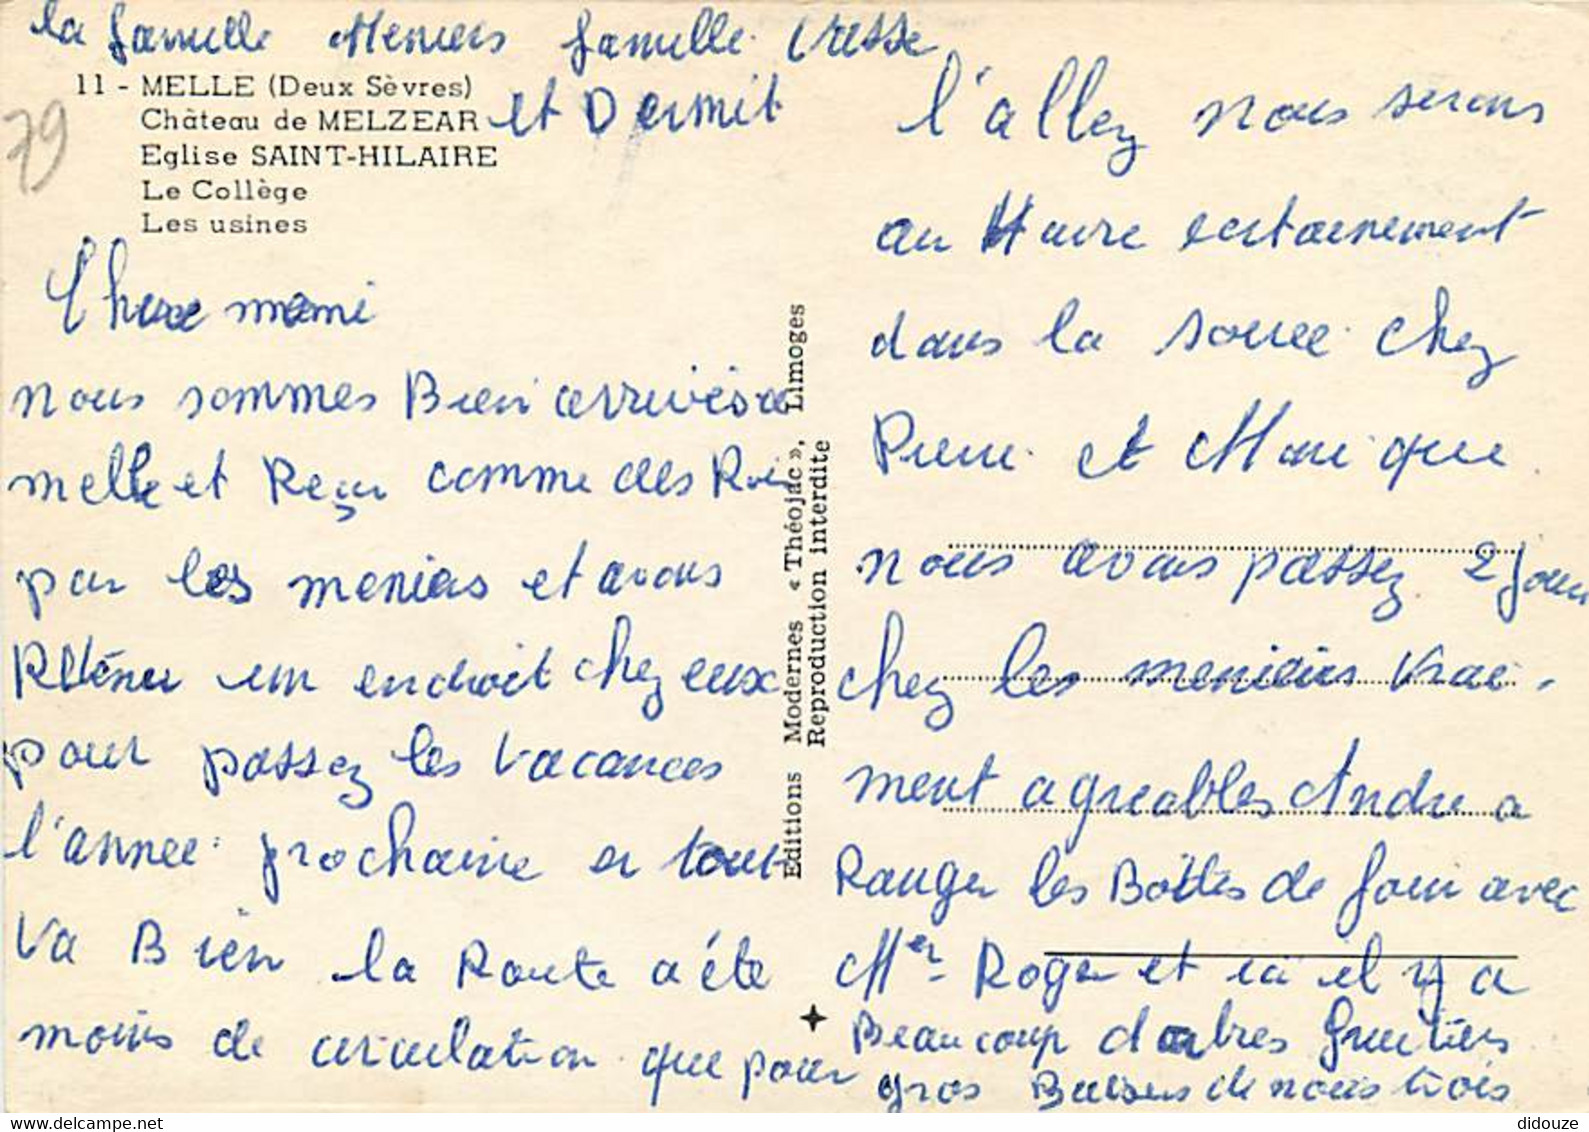 la famille Meniers famille Cresse
et Dermit
11 - MELLE (Deux Sèvres)
Château de MELZEAR
Eglise SAINT-HILAIRE
Le Collège
Les usines
79
Chere memi
nous sommes Bien arrivés a
melle et Reçu comme des Rois
par les meniers et avons
Retenu un endroit chez eux
pour passez les vacances
l'annee prochaine er tout
va Bien la Route a été
moins de circulation que pour
Editions Modernes « Théojac », Limoges
Reproduction interdite
l'allez nous serons
au Havre certainement
dans la soiree chez
Pierre et Marique
nous avons passez 2 jour
chez les meniers vrai-
ment agreables Andre a
Ranger les Bottes de foin avec
Mer Roger et ici il y a
Beaucoup d'arbres fruitiers
gros Baisers de nous trois
didouze